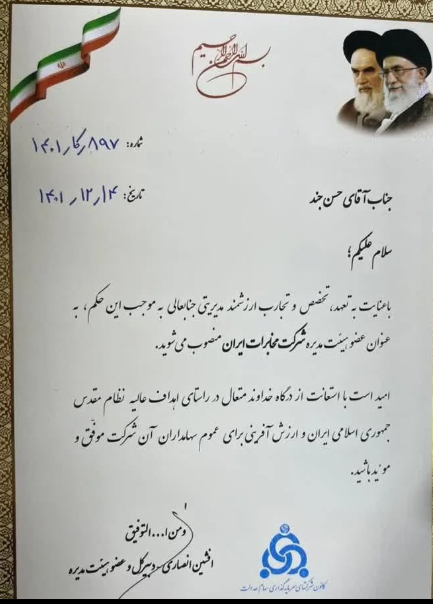 بسم الله الرحمن الرحیم
شماره: ۸۹۷/ر ک/۱۴۰۱
تاریخ: ۱۴۰۱/۱۲/۴
جناب آقای حسن جند
سلام علیکم؛
باعنایت به تعهد، تخصص و تجارب ارزشمند مدیریتی جنابعالی به موجب این حکم، به
عنوان عضو هیئت مدیره شرکت مخابرات ایران منصوب می شوید.
امید است با استعانت از درگاه خداوند متعال در راستای اهداف عالیه نظام مقدس
جمهوری اسلامی ایران و ارزش آفرینی برای عموم سهامداران آن شرکت موفق و
موید باشید.
ومن ا... التوفیق
افشین انصاری - دبیرکل و عضو هیئت مدیره
کانون شرکتهای سرمایه گذاری سهام عدالت